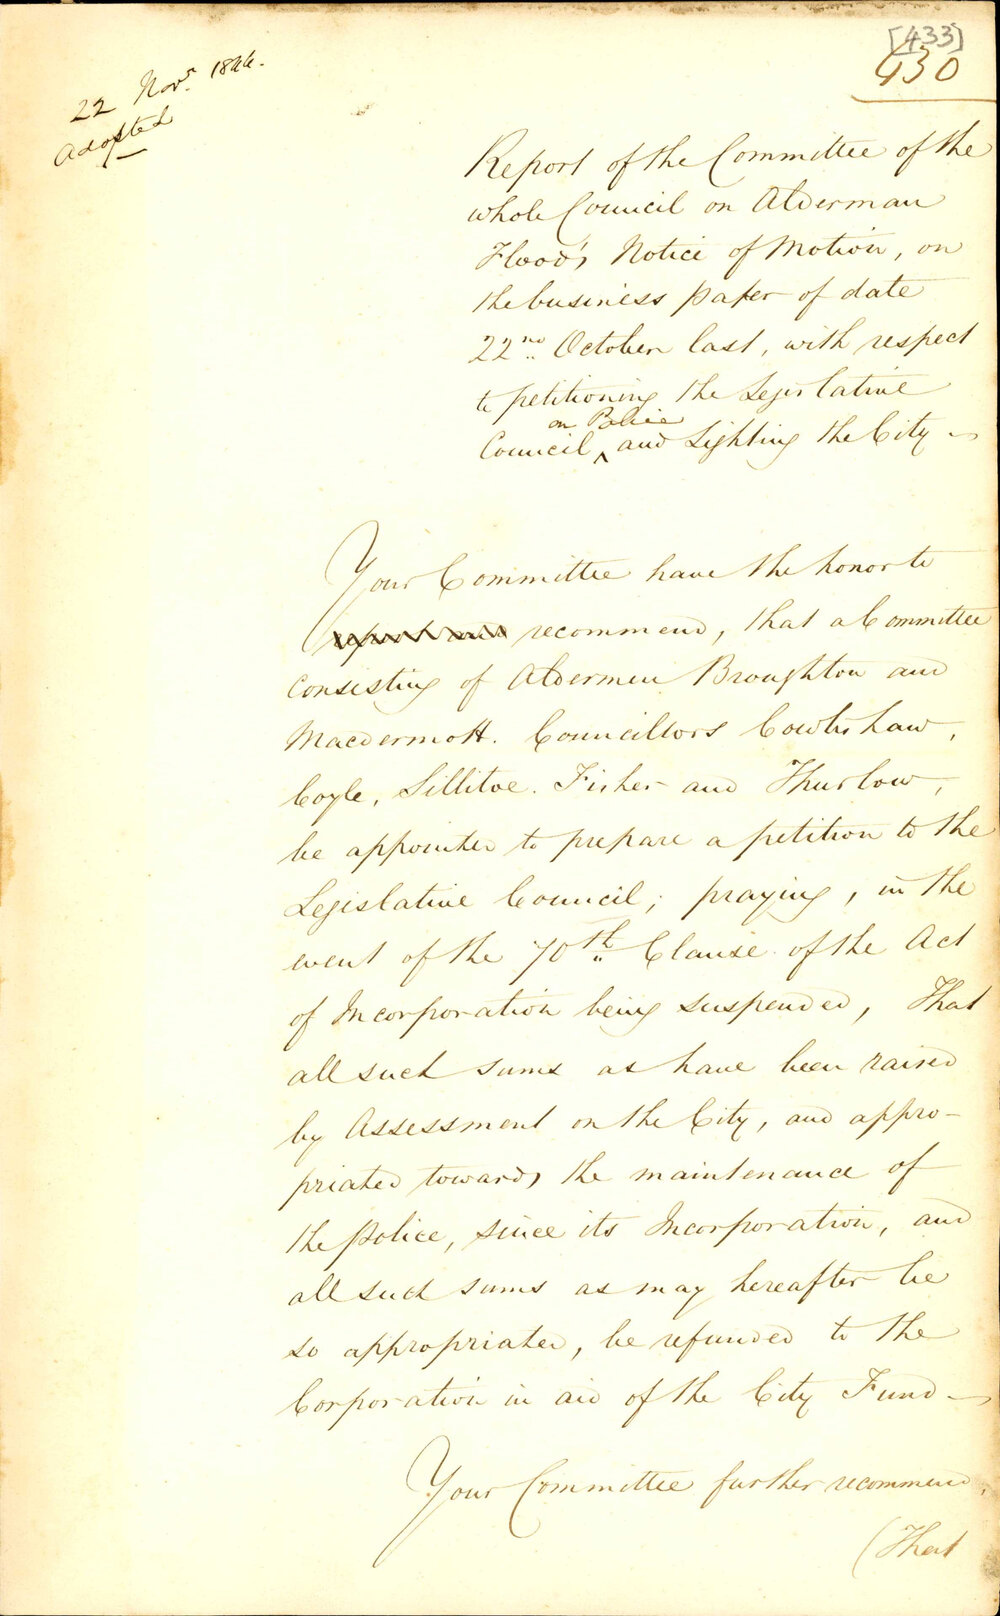 [433]
430
22 Novr. 1844.
Adopted
Report of the Committee of the
whole Council on Alderman
Flood's Notice of Motion, on
the business paper of date
22nd October last, with respect
to petitioning the Legislative
on Police
Council ^ and Lighting the City —
Your Committee have the honor to
recommend, that a Committee
consisting of Aldermen Broughton and
Macdermott. Councillors Cowlishaw,
Coyle, Sillitoe. Fisher and Thurlow,
be appointed to prepare a petition to the
Legislative Council; praying, in the
event of the 70th Clause of the Act
of Incorporation being suspended, That
all such sums as have been raised
by Assessment on the City, and appro-
priated towards the maintenance of
the Police, since its Incorporation, and
all such sums as may hereafter be
so appropriated, be refunded to the
Corporation in aid of the City Fund —
Your Committee further recommend,
(That